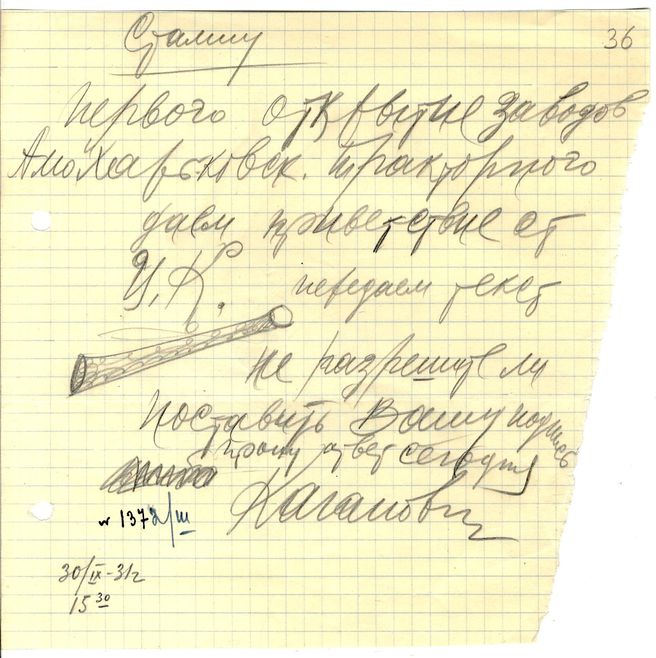 Сталину
36
первого открытие заводов
Амо Харьковск. тракторного
даем приветствие от
Ц.К. передаем текст
не разрешите ли
поставить Вашу подпись
прошу ответ сегодня
Каганович
1372/III
30/IX-31г
15 30